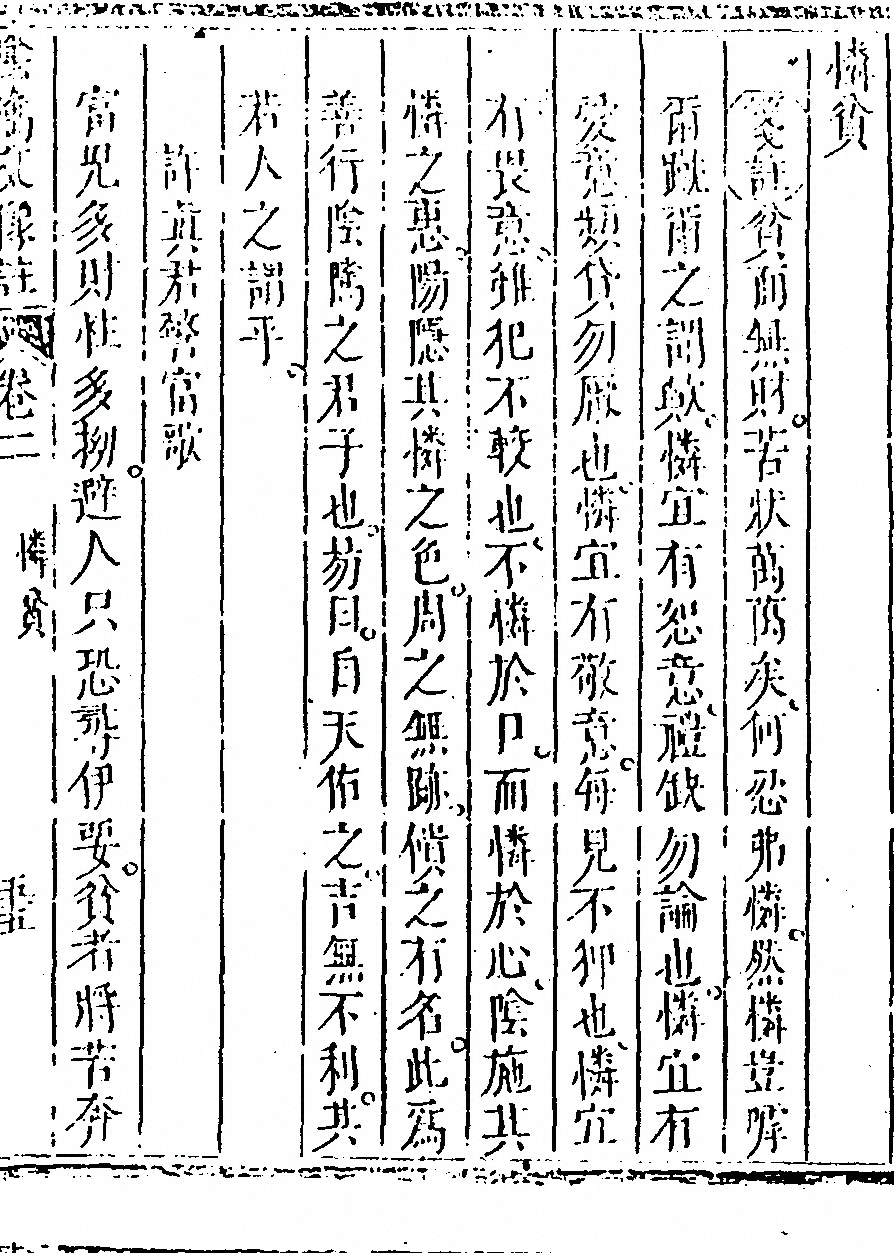 憐貧
箋註貧而無財苦狀萬萬矣何忍弗憐然憐豈嘑
爾蹴爾之謂歟憐宜有恕意禮缺勿論也憐宜有
愛意頻貸勿厭也憐宜有敬意每見不抑也憐宜
有畏意雖犯不較也不憐於口而憐於心陰施其
憐之惠陽隱其憐之色周之無跡償之有名此為
善行陰騭之君子也易曰自天佑之吉無不利其
若人之謂乎
許真君警富歌
富兄多財性多拗避人只恐尋伊要貧者將苦奔
陰騭文像註 卷二 憐貧